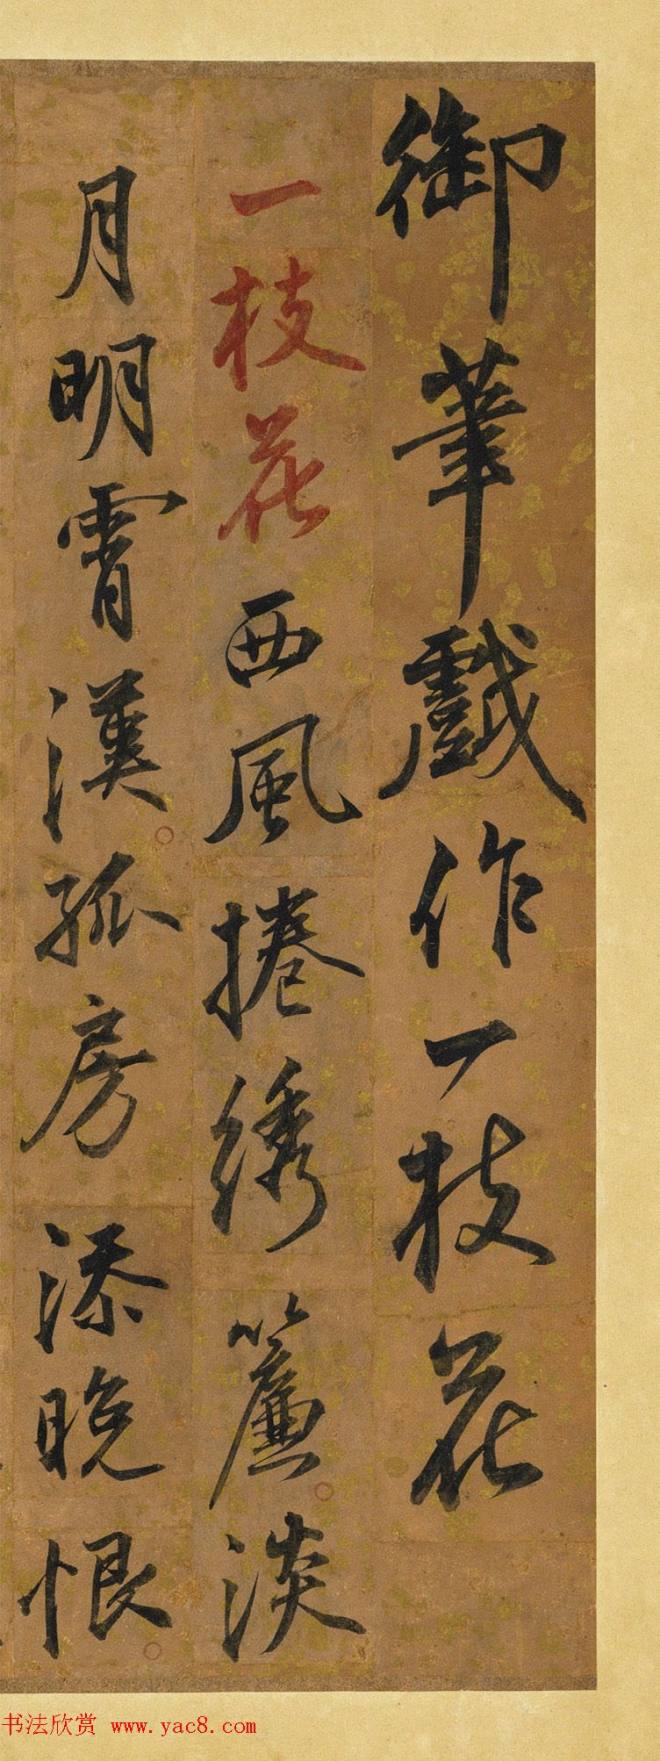 御筆戲作一枝花
一枝花西風捲綉簾淡
月明霄漢孤房添晚恨
书法欣赏 www.yac8.com